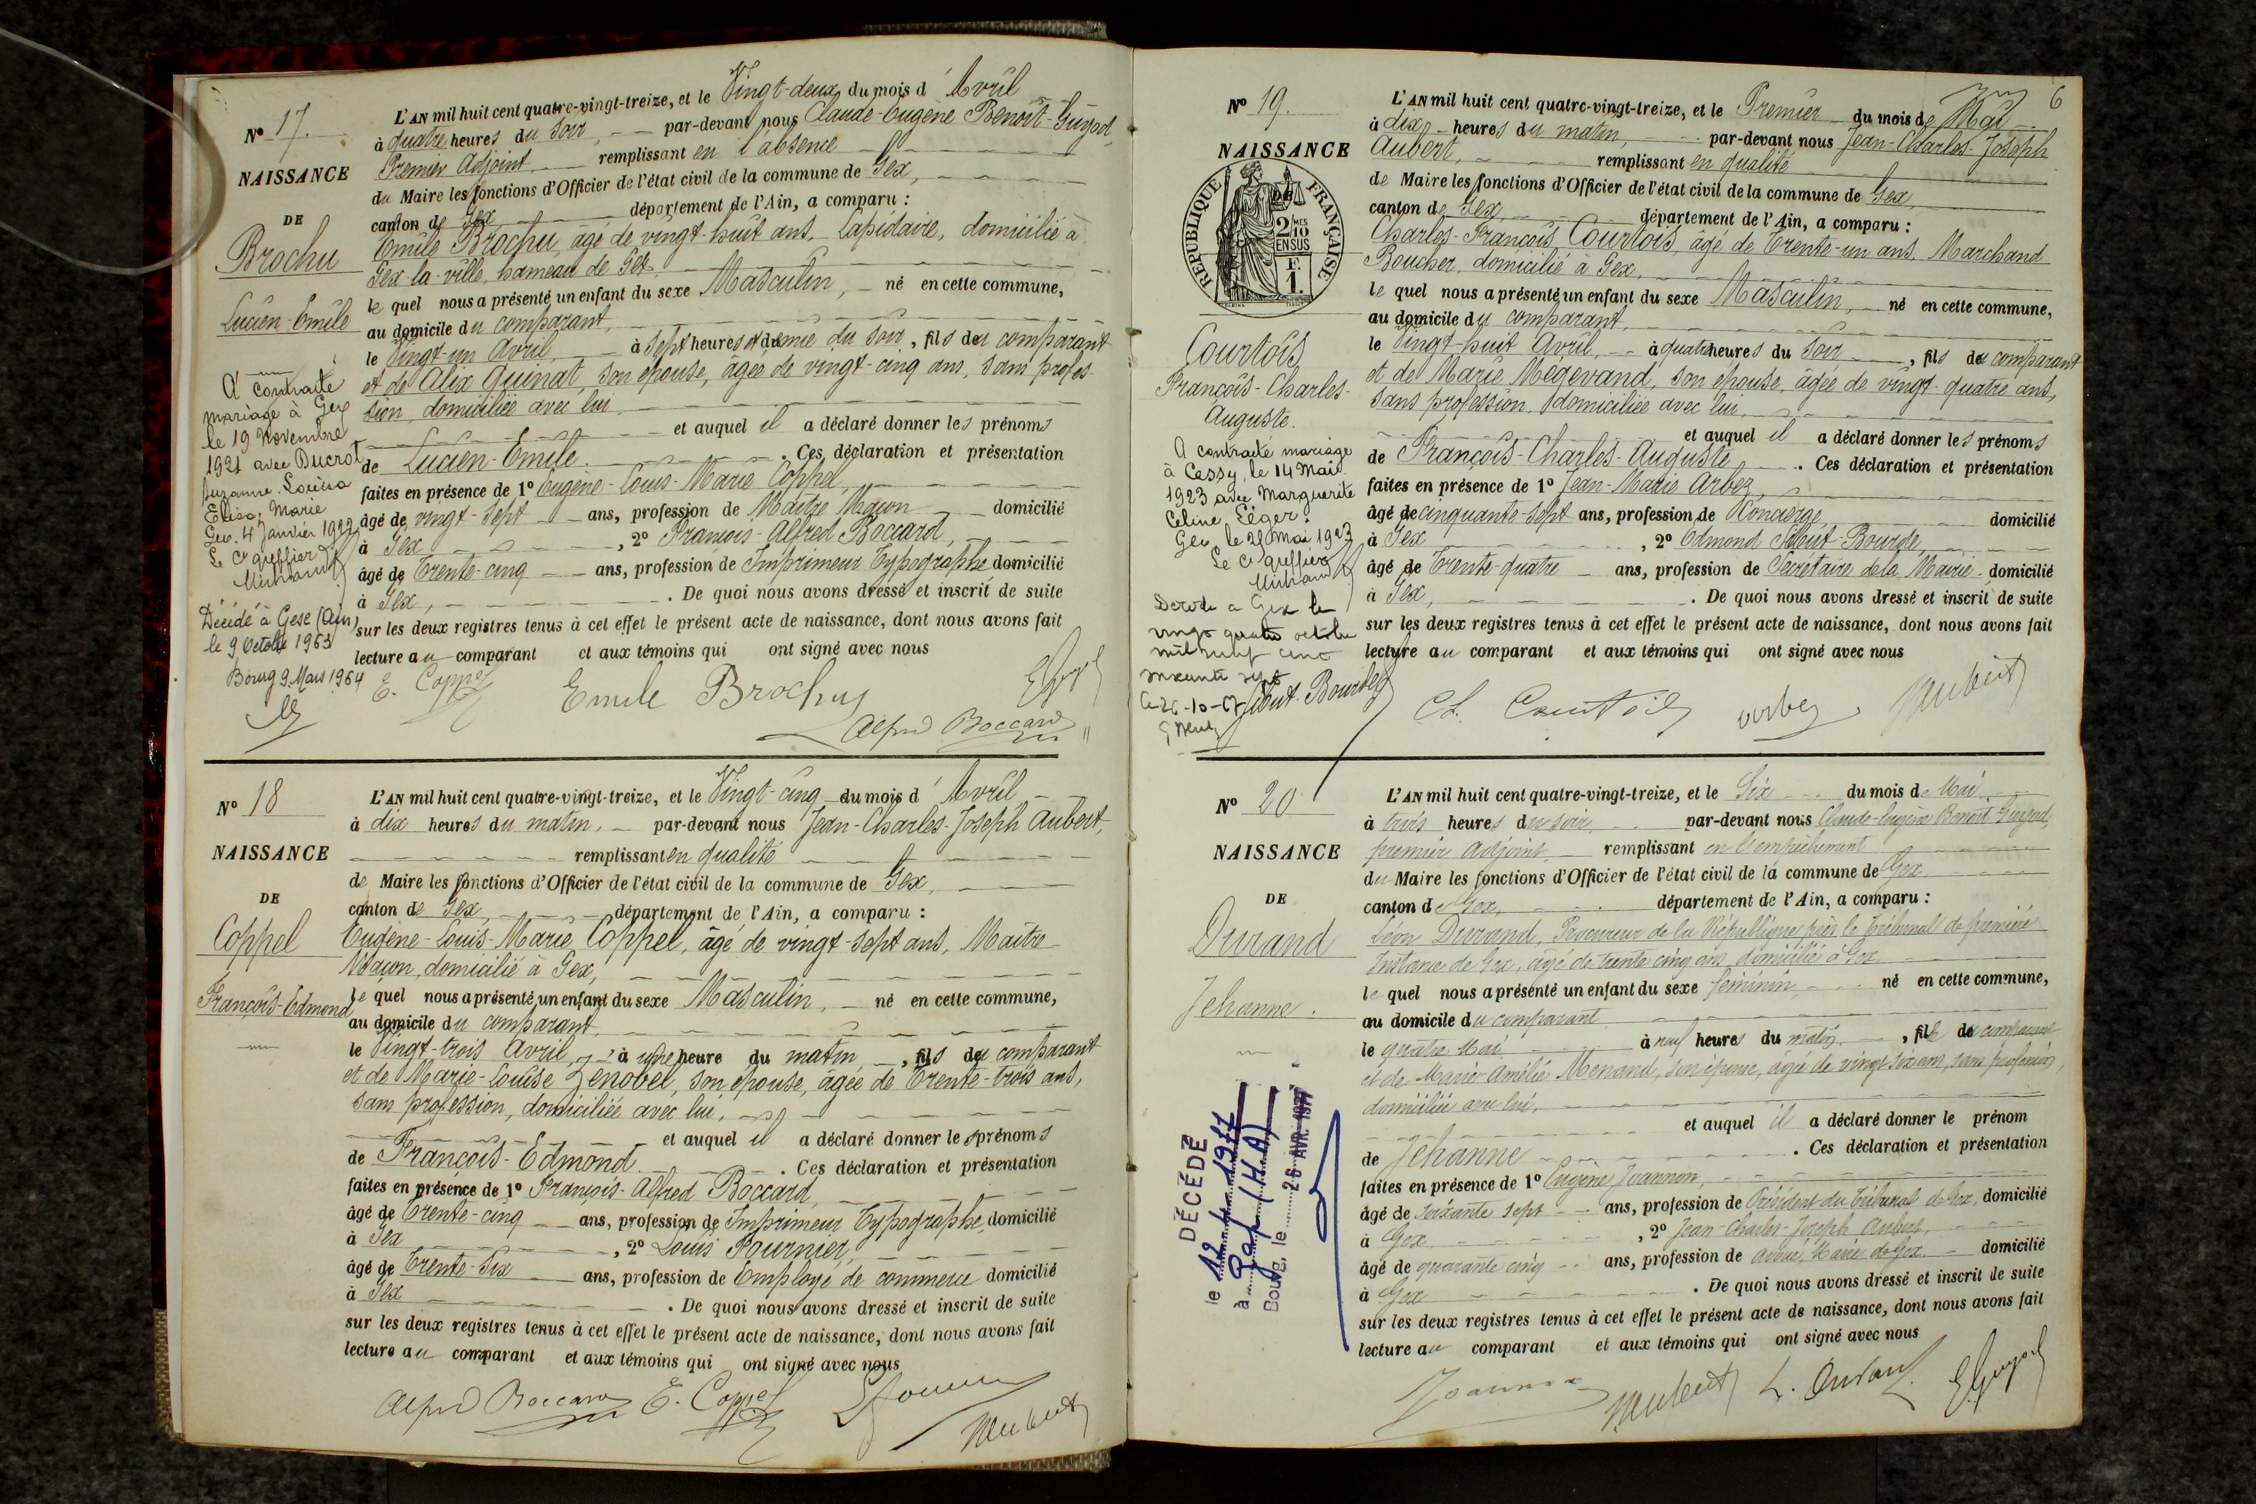 Nº 17.
NAISSANCE
DE
Brochu
Lucien-Emile
A contracté
mariage à Gex
le 19 Novembre
1921 avec Ducrot
Suzanne Louisa
Elisa, Marie
Gex. 4 Janvier 1922
Le Cs greffier
Décédé à Gex (Ain)
le 9 Octobre 1963
Bourg 9 Mars 1964
L'AN mil huit cent quatre-vingt-treize, et le Vingt-deux du mois d'Avril
à quatre heures du soir, par-devant nous Claude-Eugène Benoit-Guyod,
Premier Adjoint, remplissant en l'absence
du Maire les fonctions d'Officier de l'état civil de la commune de Gex,
canton de Gex département de l'Ain, a comparu :
Emile Brochu, âgé de vingt-huit ans, Lapidaire, domicilié à
Gex-la-ville, hameau de Gex.
le quel nous a présenté un enfant du sexe Masculin, né en cette commune,
au domicile du comparant,
le Vingt-un Avril, à sept heures et demie du soir, fils du comparant
et de Alix Quinat, son épouse, âgée de vingt-cinq ans, sans profes-
sion, domiciliée avec lui
et auquel il a déclaré donner les prénoms
de Lucien-Emile. Ces déclaration et présentation
faites en présence de 1º Eugène-Louis-Marie Coppel,
âgé de vingt-sept ans, profession de Maître Maçon domicilié
à Gex, 2º François-Alfred Boccard,
âgé de Trente-cinq ans, profession de Imprimeur Typographe domicilié
à Gex, . De quoi nous avons dressé et inscrit de suite
sur les deux registres tenus à cet effet le présent acte de naissance, dont nous avons fait
lecture au comparant et aux témoins qui ont signé avec nous
E. Coppel Emile Brochu
Alfred Boccard
Nº 18
NAISSANCE
DE
Coppel
François-Edmond
L'AN mil huit cent quatre-vingt-treize, et le Vingt-cinq du mois d'Avril
à dix heures du matin, par-devant nous Jean-Charles-Joseph Aubert,
remplissant en qualité
de Maire les fonctions d'Officier de l'état civil de la commune de Gex,
canton de Gex, département de l'Ain, a comparu :
Eugène-Louis-Marie Coppel, âgé de vingt-sept ans, Maître
Maçon, domicilié à Gex,
le quel nous a présenté un enfant du sexe Masculin, né en cette commune,
au domicile du comparant,
le Vingt-trois Avril, à une heure du matin, fils du comparant
et de Marie-Louise Zénobel, son épouse, âgée de Trente-trois ans,
sans profession, domiciliée avec lui,
et auquel il a déclaré donner les prénoms
de François-Edmond. Ces déclaration et présentation
faites en présence de 1º François-Alfred Boccard
âgé de Trente-cinq ans, profession de Imprimeur Typographe domicilié
à Gex, 2º Louis Fournier,
âgé de Trente-six ans, profession de Employé de commerce domicilié
à Gex. De quoi nous avons dressé et inscrit de suite
sur les deux registres tenus à cet effet le présent acte de naissance, dont nous avons fait
lecture au comparant et aux témoins qui ont signé avec nous
Alfred Boccard E. Coppel
Aubert
6
Nº 19.
NAISSANCE
DE
RÉPUBLIQUE FRANÇAISE
2/10 MES
EN SUS
F.
1.
Courtois
François-Charles-
Auguste.
A contracté mariage
à Cessy, le 14 Mai
1923 avec Marguerite
Céline Léger.
Gex, le 28 Mai 1923
Le Cs greffier
Décédé à Gex le
vingt quatre octobre
mil neuf cent
soixante sept
26-10-67
L'AN mil huit cent quatre-vingt-treize, et le Premier du mois de Mai
à dix heures du matin, par-devant nous Jean-Charles-Joseph
Aubert, remplissant en qualité
de Maire les fonctions d'Officier de l'état civil de la commune de Gex,
canton de Gex, département de l'Ain, a comparu :
Charles-François Courtois, âgé de Trente-un ans, Marchand
Boucher, domicilié à Gex,
le quel nous a présenté un enfant du sexe Masculin, né en cette commune,
au domicile du comparant,
le Vingt-huit Avril, à quatre heures du soir, fils du comparant
et de Marie Mégevand, son épouse, âgée de vingt-quatre ans,
sans profession, domiciliée avec lui,
et auquel il a déclaré donner les prénoms
de François-Charles-Auguste. Ces déclaration et présentation
faites en présence de 1º Jean-Marie Arbez,
âgé de cinquante-sept ans, profession de Concierge domicilié
à Gex, 2º Edmond Sibut-Bourde,
âgé de Trente-quatre ans, profession de Secrétaire de la Mairie domicilié
à Gex, . De quoi nous avons dressé et inscrit de suite
sur les deux registres tenus à cet effet le présent acte de naissance, dont nous avons fait
lecture au comparant et aux témoins qui ont signé avec nous
Sibut-Bourde Ch. Courtois Arbez Aubert
Nº 20
NAISSANCE
DE
Durand
Jehanne.
DÉCÉDÉ
le 12.4.1977
à Gap (H.A)
Bourg, le 26 AVR. 1977
L'AN mil huit cent quatre-vingt-treize, et le Six du mois de Mai
à trois heures du soir, par-devant nous Claude-Eugène Benoit-Guyod,
premier adjoint, remplissant en l'empêchement
du Maire les fonctions d'Officier de l'état civil de la commune de Gex
canton de Gex, département de l'Ain, a comparu :
Léon Durand, Procureur de la République près le Tribunal de première
Instance de Gex, âgé de trente cinq ans domicilié à Gex
le quel nous a présenté un enfant du sexe féminin, né en cette commune,
au domicile du comparant
le quatre Mai à neuf heures du matin, fille du comparant
et de Marie Amélie Menand, son épouse, âgée de vingt six ans, sans profession,
domiciliée avec lui,
et auquel il a déclaré donner le prénom
de Jehanne. Ces déclaration et présentation
faites en présence de 1º Eugène Joannon,
âgé de soixante sept ans, profession de Président du Tribunal de Gex, domicilié
à Gex, 2º Jean-Charles-Joseph Aubert,
âgé de quarante cinq ans, profession de avoué, Maire de Gex domicilié
à Gex. De quoi nous avons dressé et inscrit de suite
sur les deux registres tenus à cet effet le présent acte de naissance, dont nous avons fait
lecture au comparant et aux témoins qui ont signé avec nous
Joannon Aubert L. Durand E. Guyod